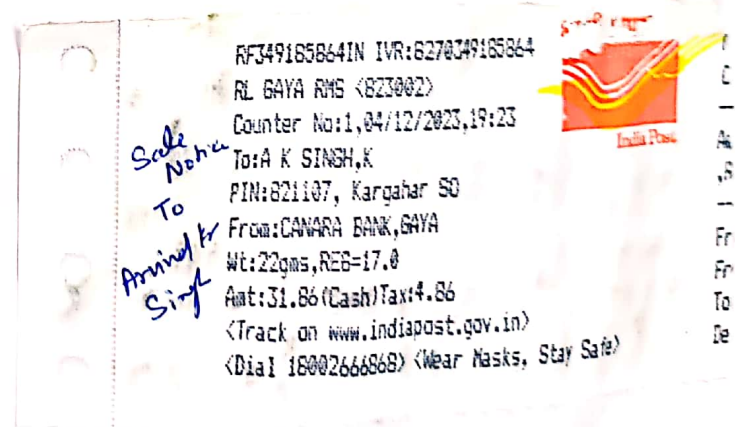 RF349185864IN IVR:8270349185864
RL GAYA RMS <823002>
Counter No:1,04/12/2023,19:23
To:A K SINGH,K
PIN:821107, Kargahar SO
From:CANARA BANK,GAYA
Wt:22gms,REG=17.0
Amt:31.86(Cash)Tax:4.86
<Track on www.indiapost.gov.in>
<Dial 18002666868> <Wear Masks, Stay Safe>
Sale
Notice
To
Arvind Kr
Singh
India Post
Fr
Fr
To
De